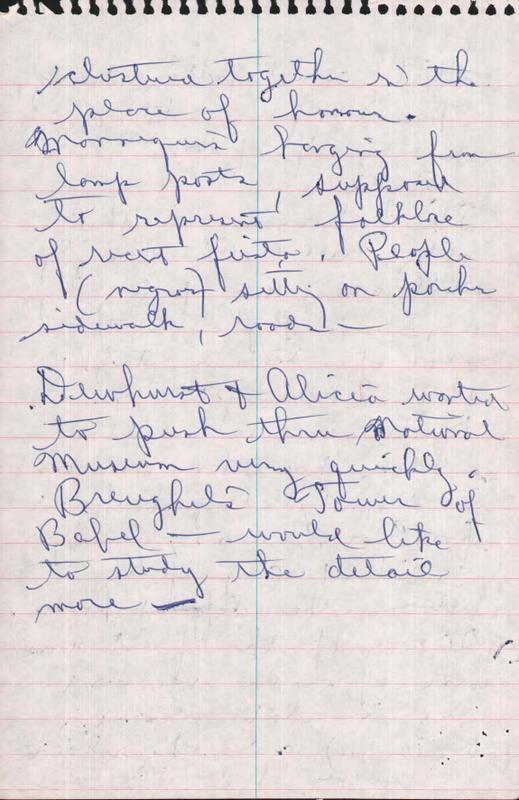 clustered together in the
place of honour.
Mannequins hanging from
lamp posts, supposed
to represent folklore
of next fiesta. People
(negros) sitting on porches
sidewalk, roads —
Dewhurst & Alicia wanted
to push thru National
Museum very quickly.
Breughel's Tower of
Babel — would like
to study the detail
more —